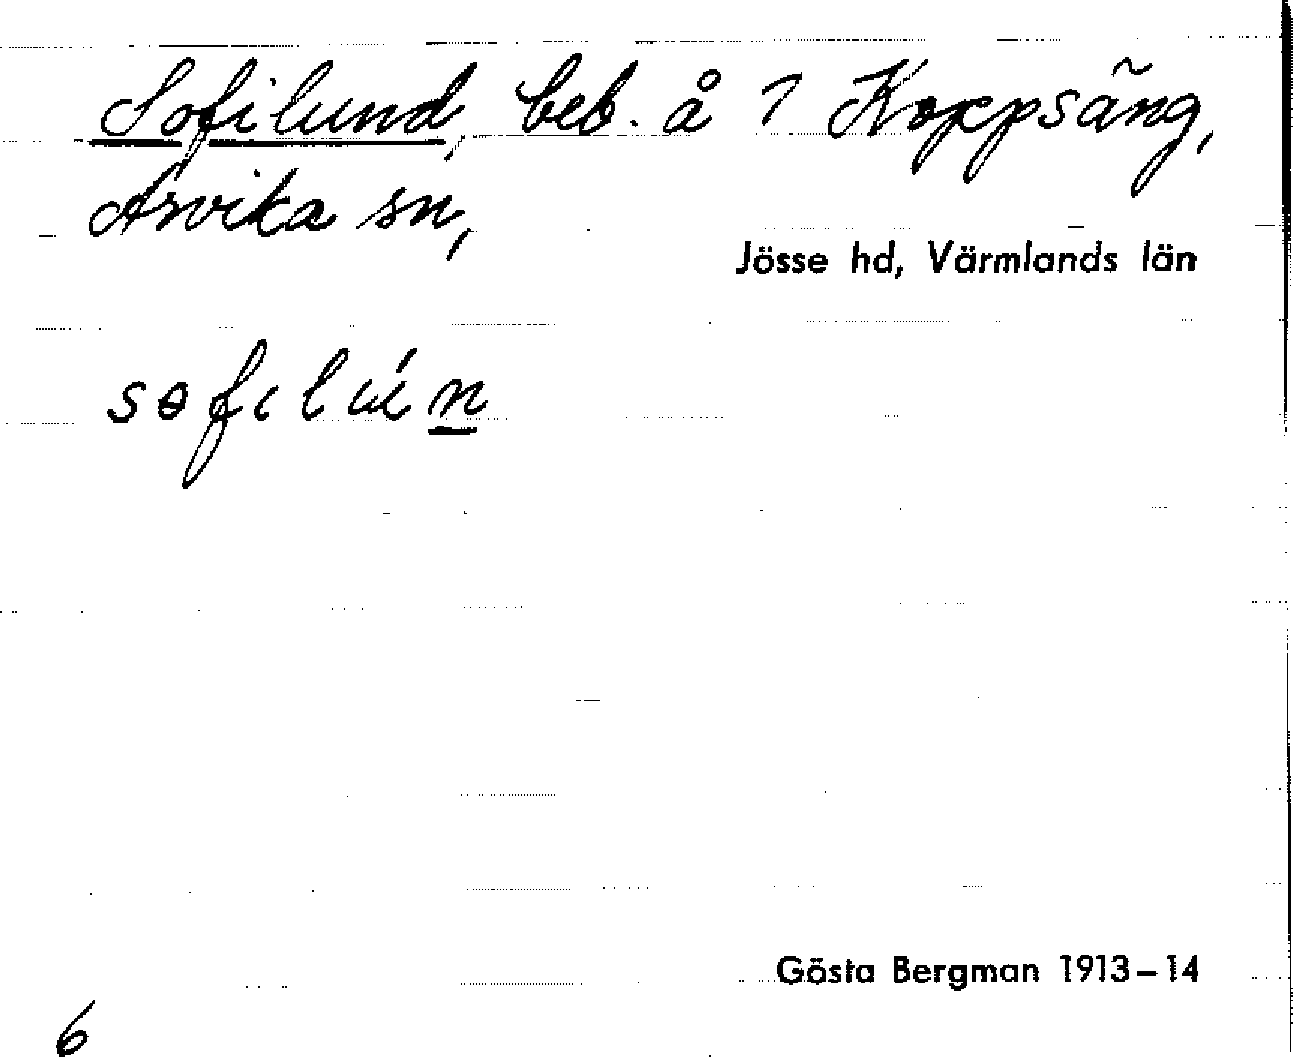 Sofilund, beb. å 1 Koppsäng,
Arvika sn,
Jösse hd, Värmlands län
Gösta Bergman 1913–14
6